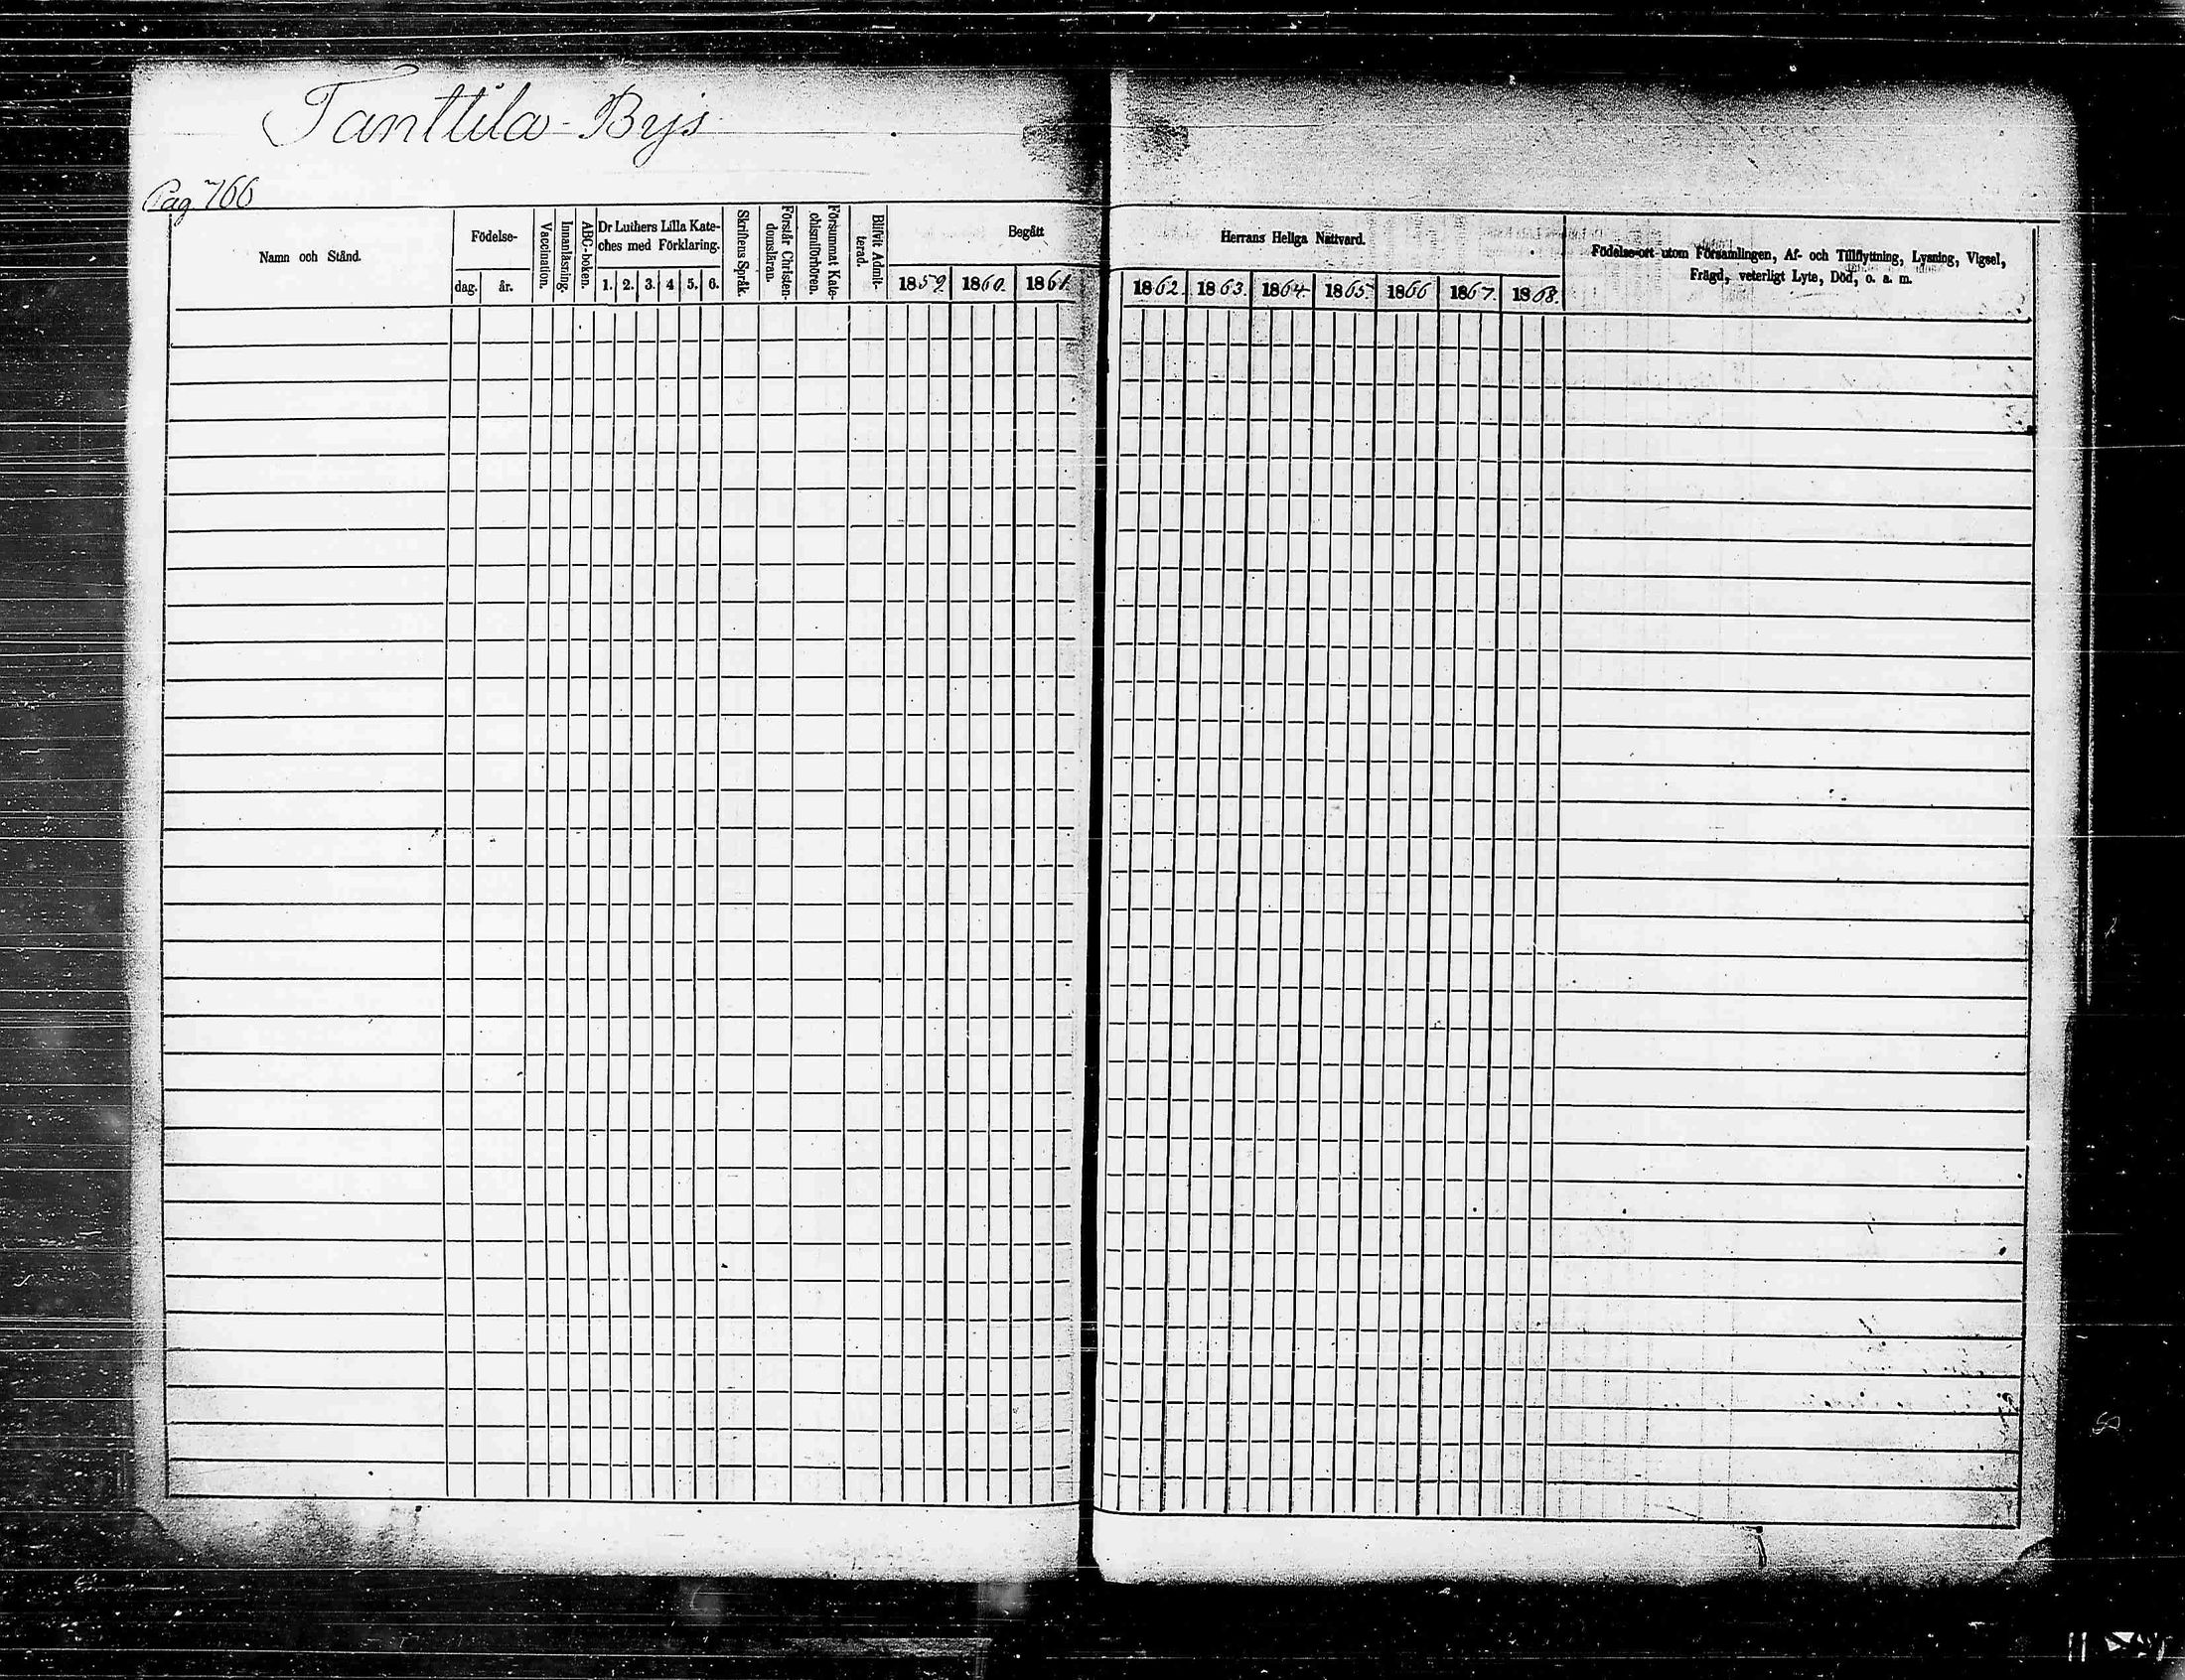 Tanttila-Bys
Pag 766
Namn och Stånd.
Födelse-
dag.
år.
Vaccination.
Innanläsning.
ABC-boken.
Dr Luthers Lilla Kate-
ches med Förklaring.
1. 2. 3. 4 5. 6.
Skriftens Språk.
Förstår Christen-
domsläran.
Försummat Kate-
chismiförhören.
Blifvit Admit-
terad.
Begått
1859. 1860. 1861.
Herrans Heliga Nattvard.
1862. 1863. 1864. 1865. 1866 1867. 1868.
Födelse-ort utom Församlingen, Af- och Tillflyttning, Lysning, Vigsel,
Frägd, veterligt Lyte, Död, o. a. m.